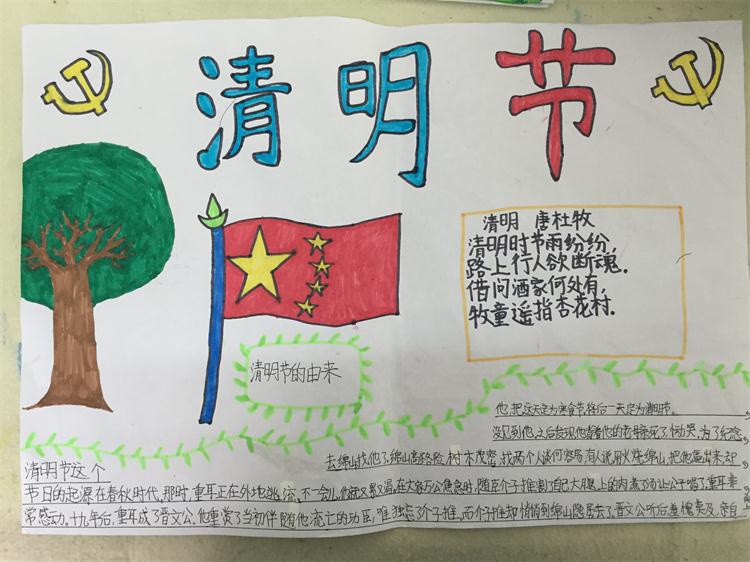 清明节
清明 唐杜牧
清明时节雨纷纷,
路上行人欲断魂.
借问酒家何处有,
牧童遥指杏花村.
清明节的由来
清明节这个
节日的起源在春秋时代,那时,重耳正在外地逃流,不一会儿他就又累又渴,在大家万分焦急时,随臣介子推割下自己大腿上的肉煮了汤让公子喝了,重耳非
常感动,十九年后,重耳成了晋文公,他重赏了当初伴随他流亡的功臣,唯独忘了介子推,而介子推却悄悄到绵山隐居去了。晋文公听后羞愧莫及,亲自
去绵山找他了,绵山高路险,树木茂密,找两个人谈何容易有人说用火烧绵山,把他逼出来,却
没见到他,之后发现他背着他的老母亲死了,恸哭,为了纪念
他,把这天定为寒食节,将后一天定为清明节。